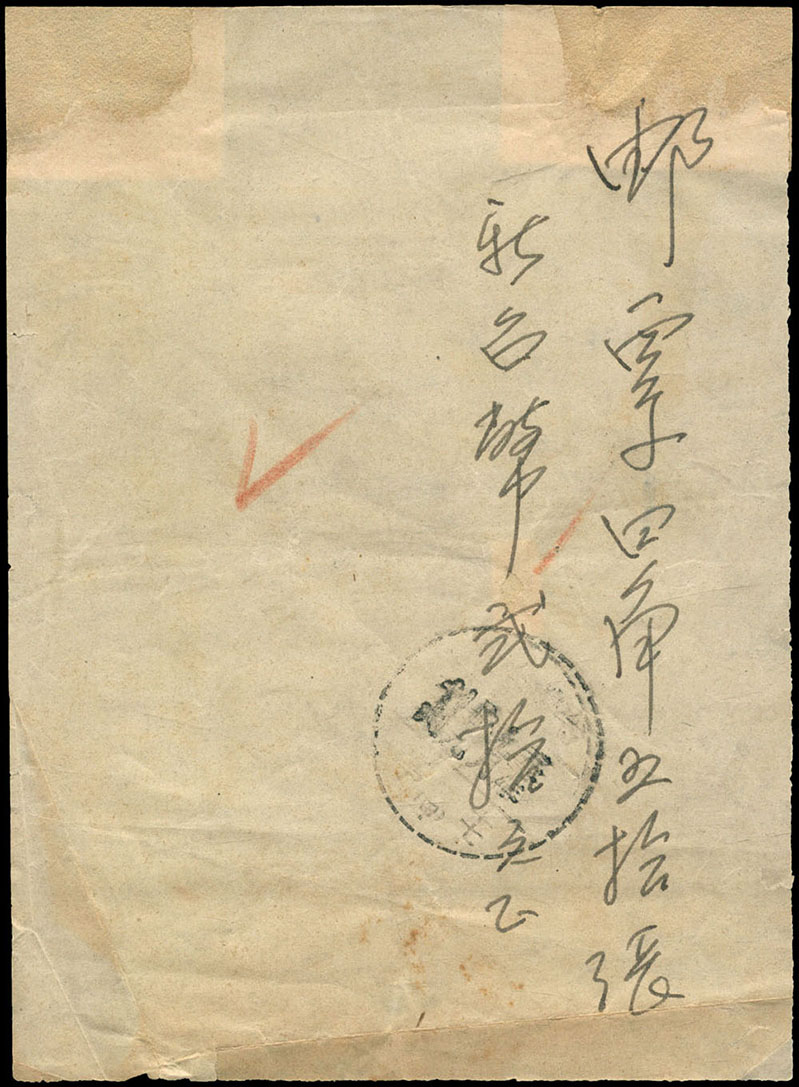 郵票四角五拾張
新台幣貳拾元正